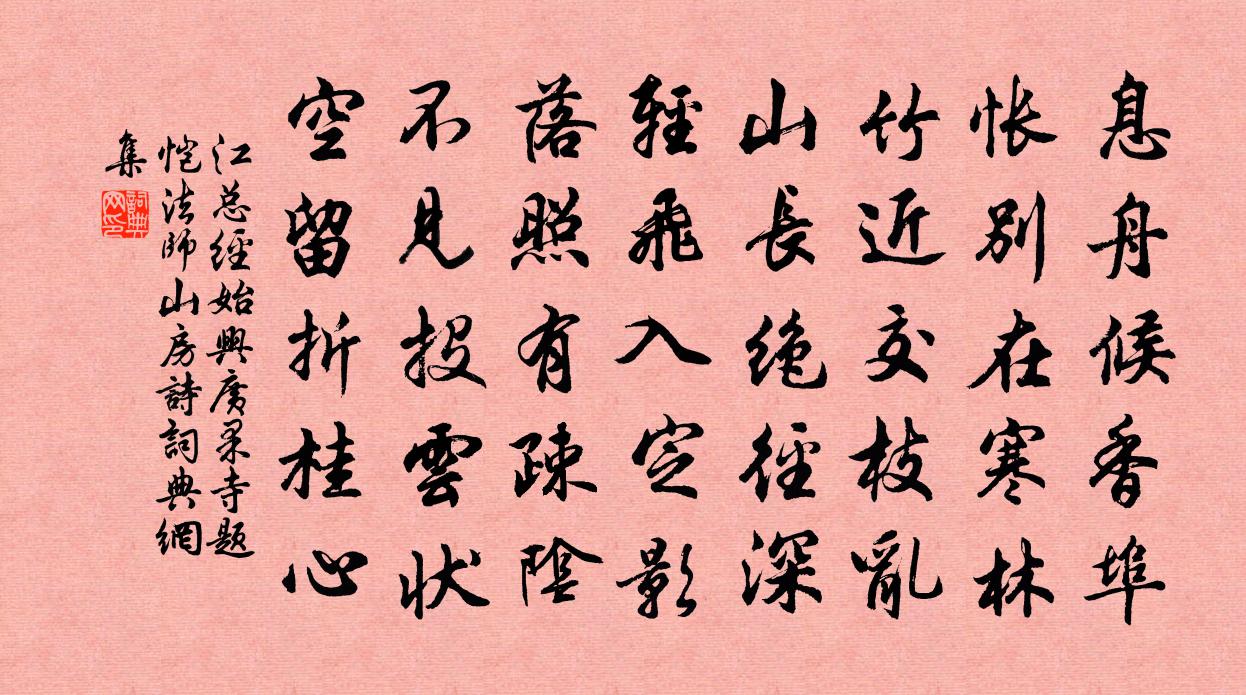 息舟候香埠
怅別在寒林
竹近交枝亂
山長绝徑深
輕飛入定影
落照有疎陰
不見投雲狀
空留折桂心
江总經始興廣果寺题
恺法師山房詩詞典網
集
詞典网印